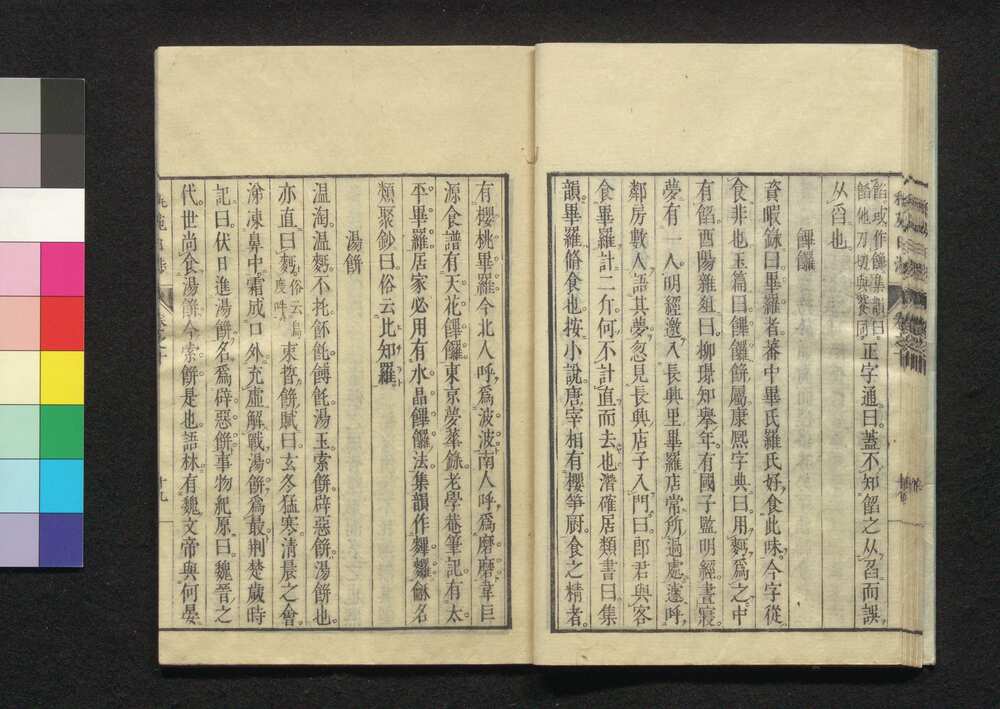 餡或作䭑集韻曰
餡他刀切與饕同正字通曰蓋不知餡之从臽而誤
从舀也
饆饠
資暇錄曰畢羅者蕃中畢氏羅氏好食此味今字從
食非也玉篇曰饆饠餠屬康熙字典曰用麪爲之中
有餡酉陽雜組曰柳璟知擧年有國子監明經晝寢
夢有一人明經邀入長興里畢羅店常所過處邃呼
鄰房數人語其夢忽見長興店子入門曰郎君與客
食畢羅計二斤何不計直而去也潛確居類書曰集
韻畢羅脩食也按小說唐宰相有櫻笋厨食之精者
有櫻桃畢羅今北人呼爲波波南人呼爲磨磨韋巨
源食譜有天花饆饠東京夢華錄老學菴筆記有太
平畢羅居家必用有水晶饆饠法集韻作䴶䴹龢名
類聚鈔曰俗云比知羅
湯餠
温淘温麪不托飥飥餺飥湯玉索餠辟惡餠湯餠也
亦直曰麪俗云烏
度吽
束晳餠賦曰玄冬猛寒清晨之會
涕凍鼻中霜成口外充虛解戰湯餠爲最荆楚歲時
記曰伏日進湯餠名爲辟惡餠事物紀原曰魏晉之
代世尚食湯餠今索餠是也語林有魏文帝與何晏
十九